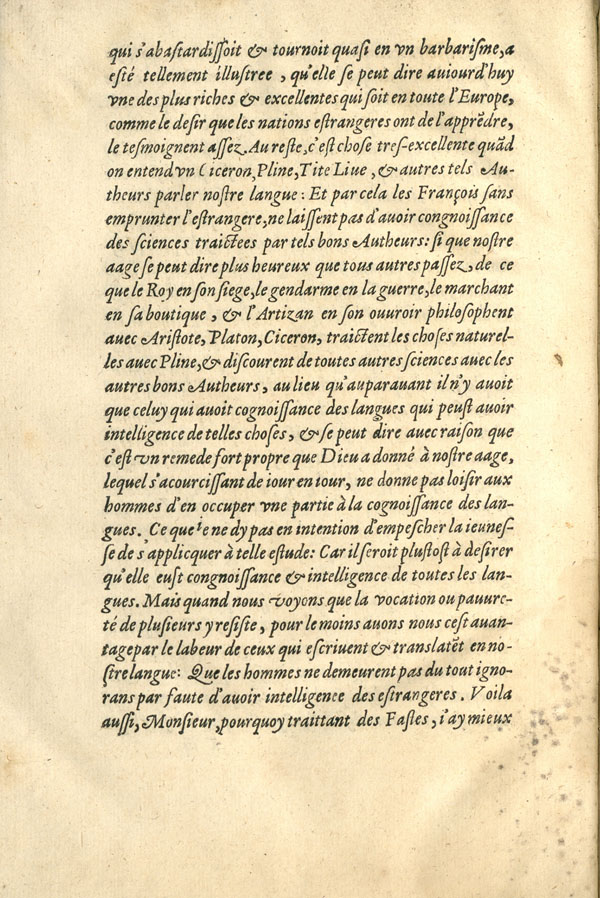 qui s'abaſtardiſſoit & tournoit quaſi en vn barbariſme, a
eſté tellement illuſtree , qu'elle ſe peut dire auiourd'huy
vne des plus riches & excellentes qui ſoit en toute l'Europe,
comme le deſir que les nations eſtrangeres ont de l'apprẽdre,
le teſmoignent aſſez. Au reſte, c'eſt choſe treſ-excellente quãd
on entend vn Ciceron, Pline, Tite Liue , & autres tels Au-
theurs parler noſtre langue : Et par cela les François ſans
emprunter l'eſtrangere, ne laiſſent pas d'auoir congnoiſſance
des ſciences traictees par tels bons Autheurs: ſi que noſtre
aage ſe peut dire plus heureux que tous autres paſſez, de ce
que le Roy en ſon ſiege, le gendarme en la guerre, le marchant
en ſa boutique , & l'Artizan en ſon ouuroir philoſophent
auec Ariſtote, Platon, Ciceron, traictent les choſes naturel-
les auec Pline, & diſcourent de toutes autres ſciences auec les
autres bons Autheurs, au lieu qu'auparauant il n'y auoit
que celuy qui auoit cognoiſſance des langues qui peuſt auoir
intelligence de telles choſes, & ſe peut dire auec raiſon que
c'eſt vn remede fort propre que Dieu a donné à noſtre aage,
lequel s'acourciſſant de iour en iour, ne donne pas loiſir aux
hommes d'en occuper vne partie à la cognoiſſance des lan-
gues. Ce que ie ne dy pas en intention d'empeſcher la ieuneſ-
ſe de s'applicquer à telle eſtude: Car il ſeroit pluſtoſt à deſirer
qu'elle euſt congnoiſſance & intelligence de toutes les lan-
gues. Mais quand nous voyons que la vocation ou pauure-
té de pluſieurs y reſiſte , pour le moins auons nous ceſt auan-
tage par le labeur de ceux qui eſcriuent & tranſlatẽt en no-
ſtre langue: Que les hommes ne demeurent pas du tout igno-
rans par faute d'auoir intelligence des eſtrangeres . Voila
auſſi, Monſieur, pourquoy traittant des Faſtes, i'ay mieux